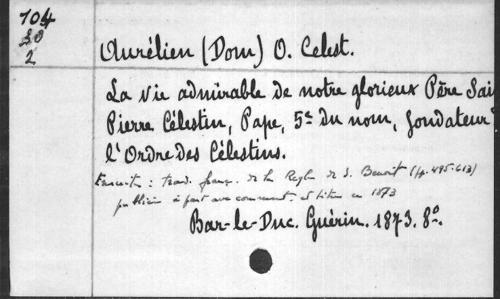 104
30
2
Aurélien (Dom) O. Celest.
La vie admirable de notre glorieux Père Sai
Pierre Célestin, Pape, 5e du nom, fondateur
l'Ordre des Célestins.
Ensuite : trad. franç. de la Règle de S. Benoit (pp. 495-613)
publiée à part avec comment. et titre en 1873
Bar-le-Duc. Guérin. 1873. 8o.